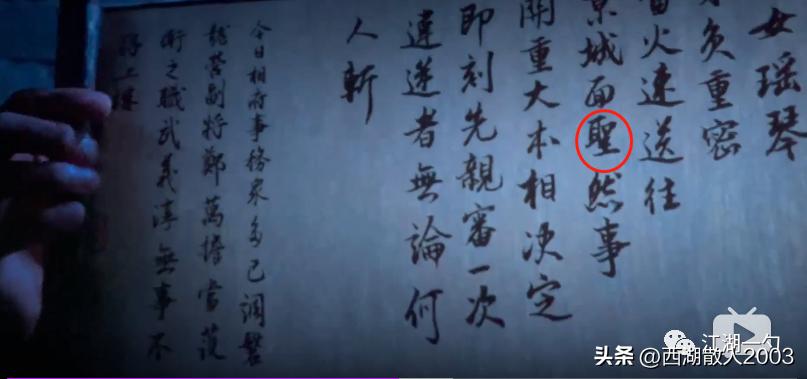 女瑤琴
負重密
火速送往
京城面聖然事
關重大本相決定
即刻先親審一次
違逆者無論何
人斬
今日相府事務衆多已調磐
龍營副將鄭萬擔當護
衛之職武義淳無事不
得上樓
江湖一勺
头条 @西湖散人2003